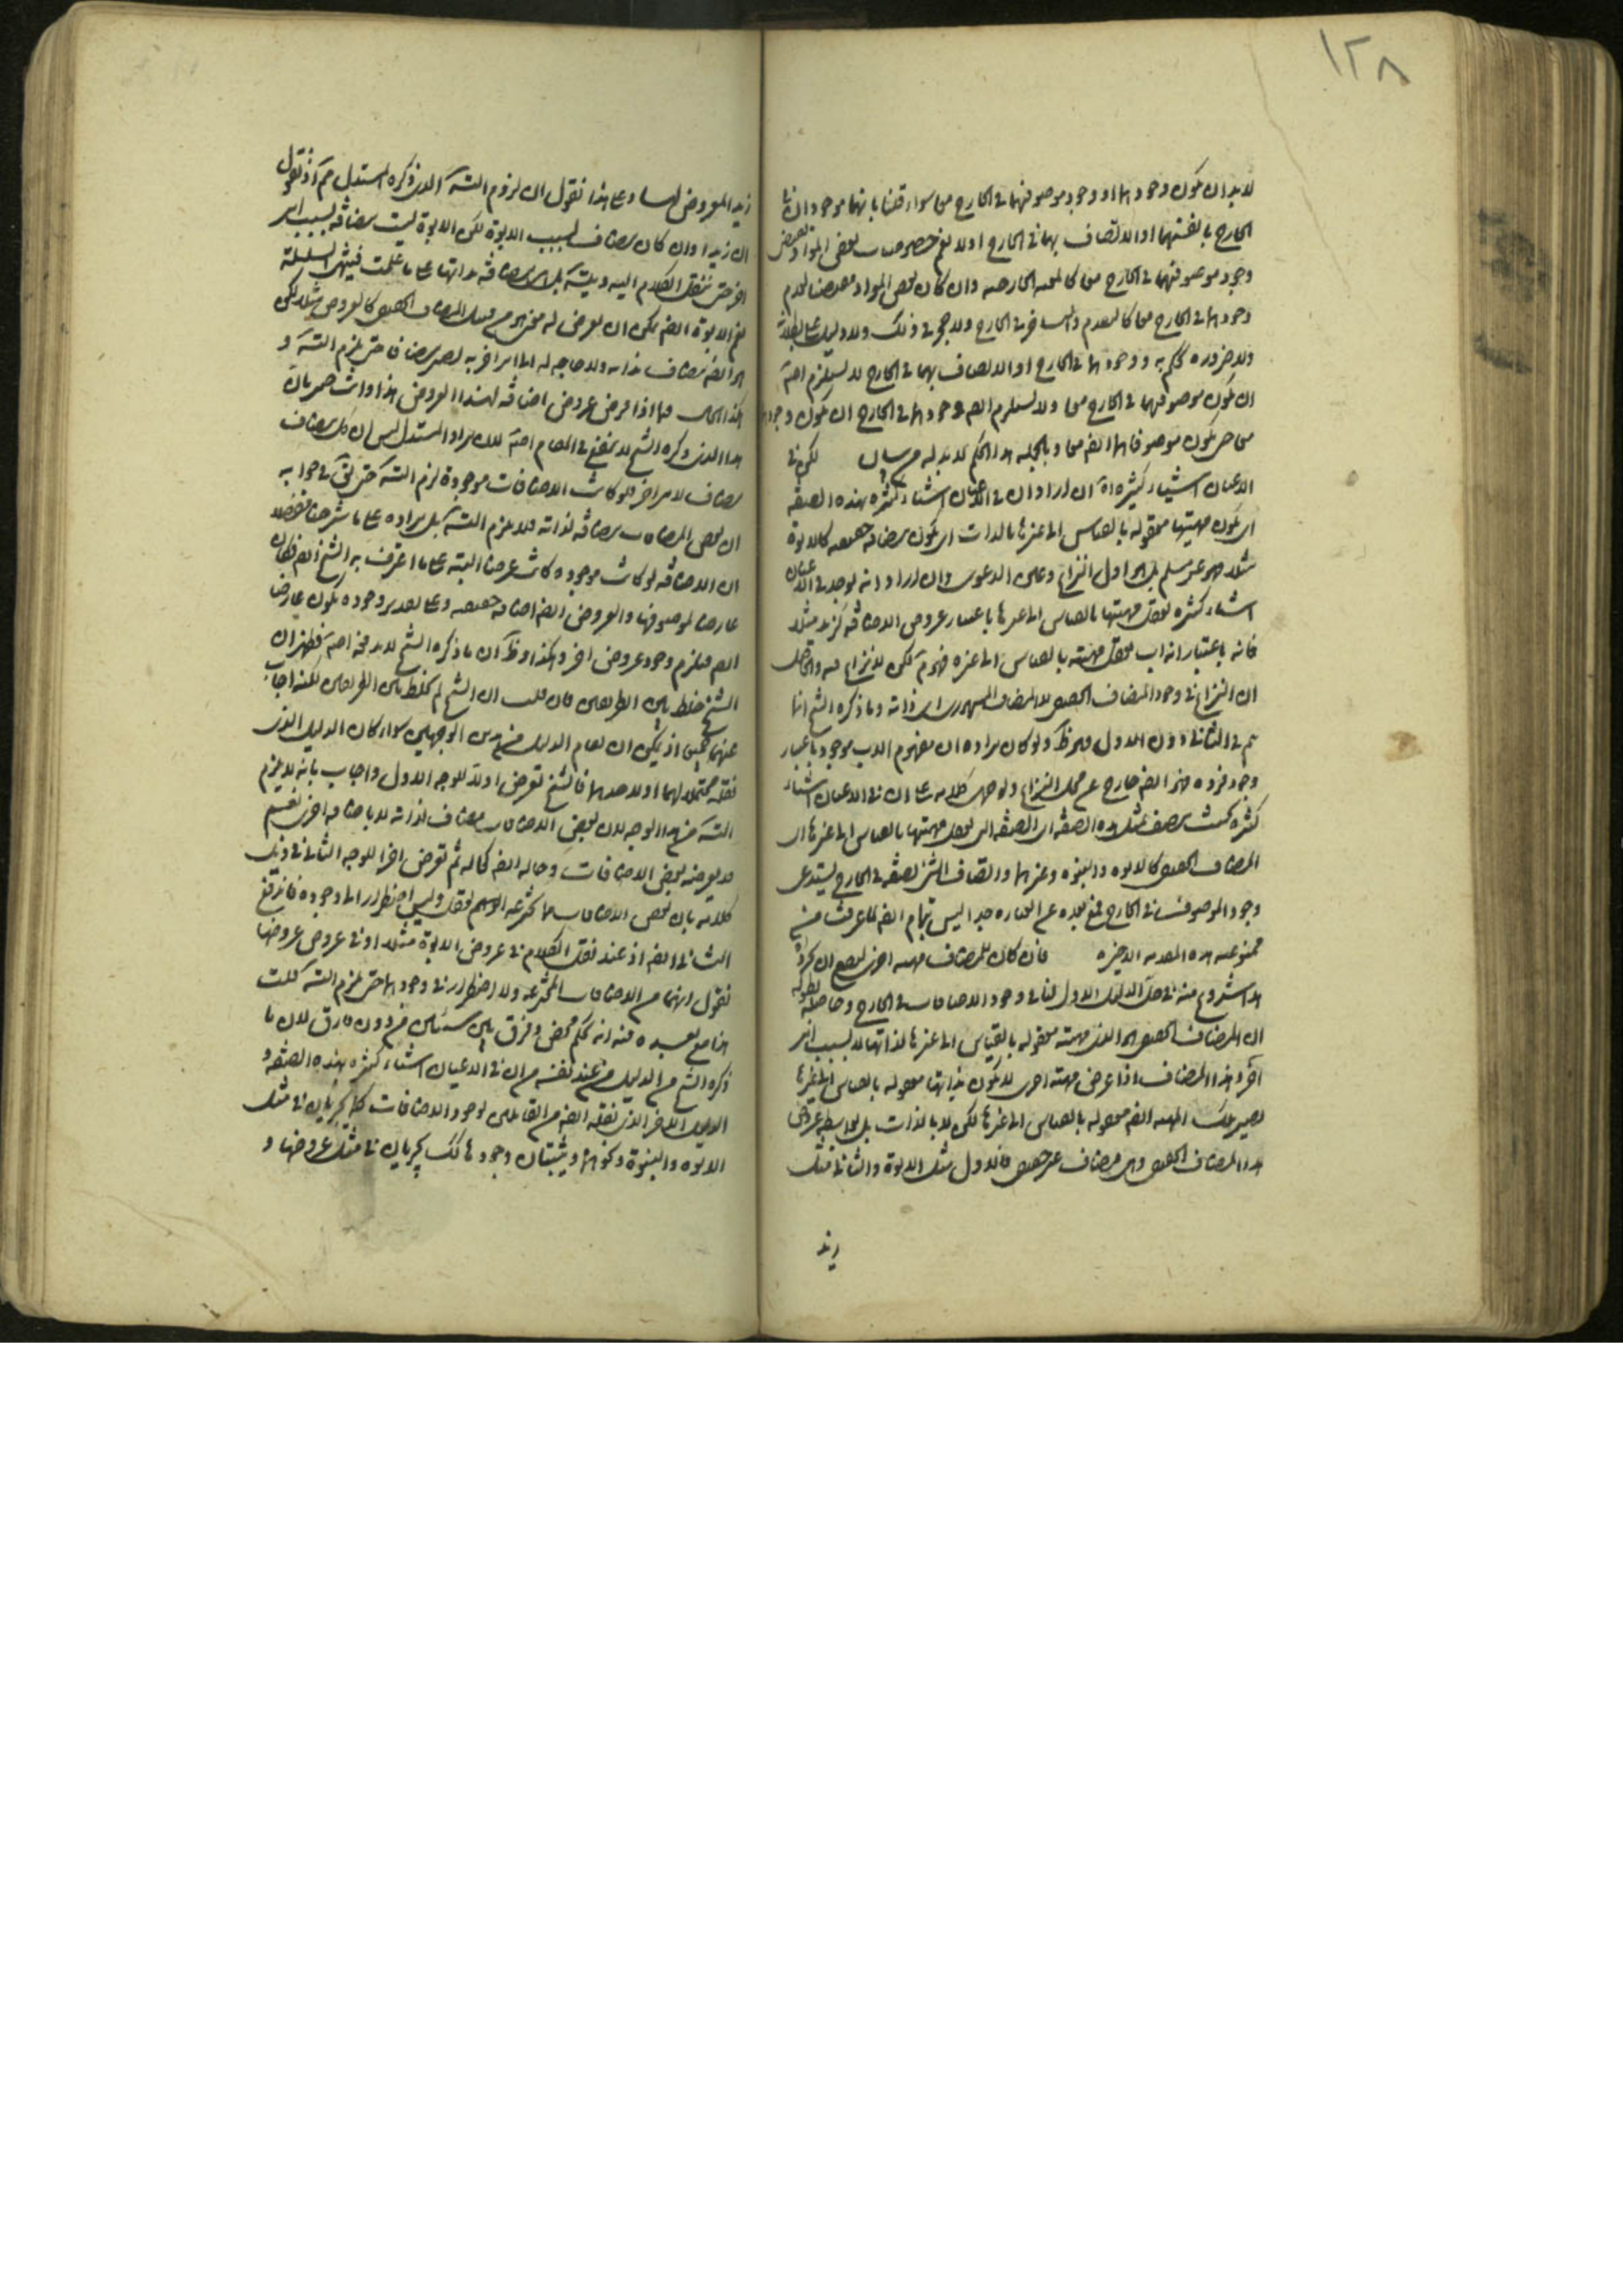 ١٢٨
لا بد ان يكون وجودهما او وجود موصوفهما في الخارج معا سواء قلنا بانهما موجودان في
الخارج بانفسهما او الاتصاف بهما في الخارج او لا نعم خصوصيات بعض المواد
وجود موصوفهما في الخارج معا كالمعية الخارجية وان كان بعض المواد لعدم
وجودهما في الخارج معا كالتقدم والتأخر في الخارج ولا حجر في ذلك ولا دليل على
ولا ضرورة تحكم به ووجودهما في الخارج او الاتصاف بهما في الخارج لا يستلزم اصلا
ان يكون موصوفهما في الخارج معا ولا يستلزم ايضا وجودهما في الخارج ان يكون
معا حتى يكون موصوفاهما ايضا معا وبالجملة هذا الحكم لا بد له من بيان لكن في
الاعيان اشياء كثيرة اه ان اراد ان في الاعيان اشياء كثيرة بهذه الصفة
اي يكون مهيتها معقولة بالقياس الى غيرها بالذات اي يكون مضافة حقيقية كالابوة
مثلا فهو غير مسلم بل هو اول النزاع وعين الدعوى وان اراد انه يوجد في الاعيان
اشياء كثيرة تعقل مهيتها بالقياس الى غيرها باعتبار عروض الاضافة كزيد مثلا
فانه باعتبار انه اب تعقل مهيته بالقياس الى غيره فهو م لكن لا نزاع فيه والحاصل
ان النزاع في وجود المضاف الحقيقي لا المضاف المشهوري اي ذاته وما ذكره الشيخ انما
يتم في الثاني دون الاول وهو ظ ولو كان مراده ان مفهوم الاب موجود باعتبار
وجود فرده فهو ايضا خارج عن محل النزاع ولو حمل كلامه على ان في الاعيان اشياء
كثيرة بحيث يتصف بمثل هذه الصفة اي الصفة التي تعقل مهيتها بالقياس الى غيرها اي
المضاف الحقيقي كالابوة والبنوة وغيرهما واتصاف الشئ بصفة في الخارج يستدعي
وجود الموصوف في الخارج فمع بعده عن العبارة جدا ليس بتمام ايضا لما عرفت من
ممنوعية هذه المقدمة الاخيرة فان كان للمضاف مهية اخرى
هذا شروع منه في حل الدليل الاول لنافي وجود الاضافات في الخارج وحاصله
ان المضاف الحقيقي هو الذي مهيته معقولة بالقياس الى غيرها لذاتها لا بسبب امر
آخر وهذا المضاف اذا عرض مهية اخرى لا يكون بذاتها معقولة بالقياس الى غيرها
يصير تلك المهية ايضا معقولة بالقياس الى غيرها لكن لا بالذات بل بواسطة عروض
هذا المضاف الحقيقي وهو مضاف غير حقيقي فالاول مثل الابوة والثاني مثل
زيد
زيد المعروض لها وعلى هذا نقول ان لزوم التسه الذي ذكره المستدل مم اذ نقول
ان زيدا وان كان مضافا بسبب الابوة لكن الابوة ليست مضافة بسبب امر
آخر حتى ننقل الكلام اليه ويتسه بل هي مضافة بذاتها على ما علمت فينتهي السلسلة
نعم الابوة ايضا يمكن ان يعرض له مفهوم من قبيل المضاف الحقيقي كالعروض مثلا لكن
هو ايضا مضاف بذاته ولا حاجة له الى امر آخر به يصير مضافا حتى يلزم التسه و
هكذا الحال فيما اذا فرض عروض اضافة لهذا العروض هذا وانت خبير بان
هذا الذي ذكره الشيخ لا ينفع في المقام اصلا لان مراد المستدل ليس ان كل مضاف
مضاف لامر آخر فلو كانت الاضافات موجودة لزم التسه حتى يق في جوابه
ان بعض المضاف مضافة لذاته فلا يلزم التسه بل مراده على ما شرحنا مفصلا
ان الاضافة لو كانت موجودة كانت عرضا البتة على ما اعترف به الشيخ ايضا فكان
عارضا لموصوفها والعروض ايضا اضافة حقيقية وعلى تقدير وجوده يكون عارضا
ايضا فيلزم وجود عروض آخر وهكذا وظ ان ما ذكره الشيخ لا يدفعه اصلا فظهر ان
الشيخ خلط بين الطريقين فان قلت ان الشيخ لم يخلط بين الطريقين لكنه اجاب
عنهما جميعا اذ يمكن ان يقام الدليل من هذين الوجهين سواء كان الدليل الذي
نقله محتملا لهما او لاحدهما فالشيخ تعرض اولا للوجه الاول واجاب بانه لا يلزم
التسه من هذا الوجه لان بعض الاضافات مضاف لذاته لا باضافة اخرى
قد يعرضه بعض الاضافات وحاله ايضا كحاله ثم تعرض آخرا للوجه الثاني في ذيل
كلامه بان بعض الاضافات مما يخترعه الوهم فقط وليس اضطرار الى وجوده فاندفع
الثاني ايضا اذ عند نقل الكلام في عروض الابوة مثلا او في عروض عروضها
نقول انهما من الاضافات المخترعة ولا اضطرار في وجودهما حتى يلزم التسه قلت
هذا مع بعده فيه انه تحكم محض وفرق بين شيئين من دون فارق لان ما
ذكره الشيخ من الدليل من عند نفسه من ان في الاعيان اشياء كثيرة بهذه الصفة و
الدليل الآخر الذي نقله ايضا من القائلين لوجود الاضافات كما يجريان في مثل
الابوة والبنوة ونحوهما ويثبتان وجودها كك يجريان في مثل عروضها و